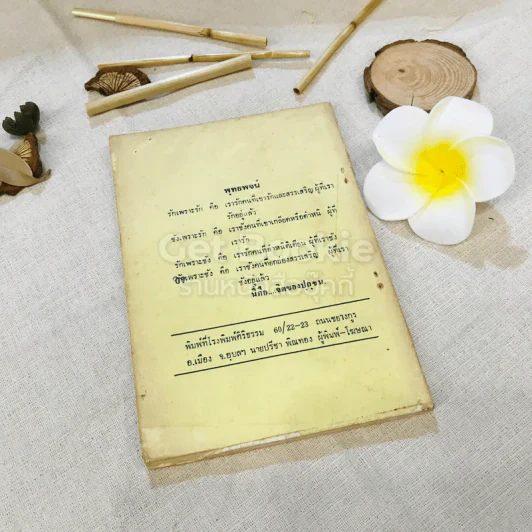 พุทธพจน์
รักเพราะรัก คือ เรารักคนที่เขารักและสรรเสริญ ผู้ที่เรา
รักอยู่แล้ว
ชังเพราะรัก คือ เราชังคนที่เขาเกลียดหรือตำหนิ ผู้ที่
เรารัก
รักเพราะชัง คือ เรารักคนที่ตำหนิติเตียน ผู้ที่เราชัง
ชังเพราะชัง คือ เราชังคนที่ยกย่องสรรเสริญ ผู้ที่เรา
ชังอยู่แล้ว
นี่คือ...จิตของปุถุชน
Get Bookie
ร้านหนังสือบุ๊คกี้
พิมพ์ที่โรงพิมพ์ศิริธรรม 60/22-23 ถนนชยางกูร
อ.เมือง จ.อุบลฯ นายปรีชา พิณทอง ผู้พิมพ์-โฆษณา